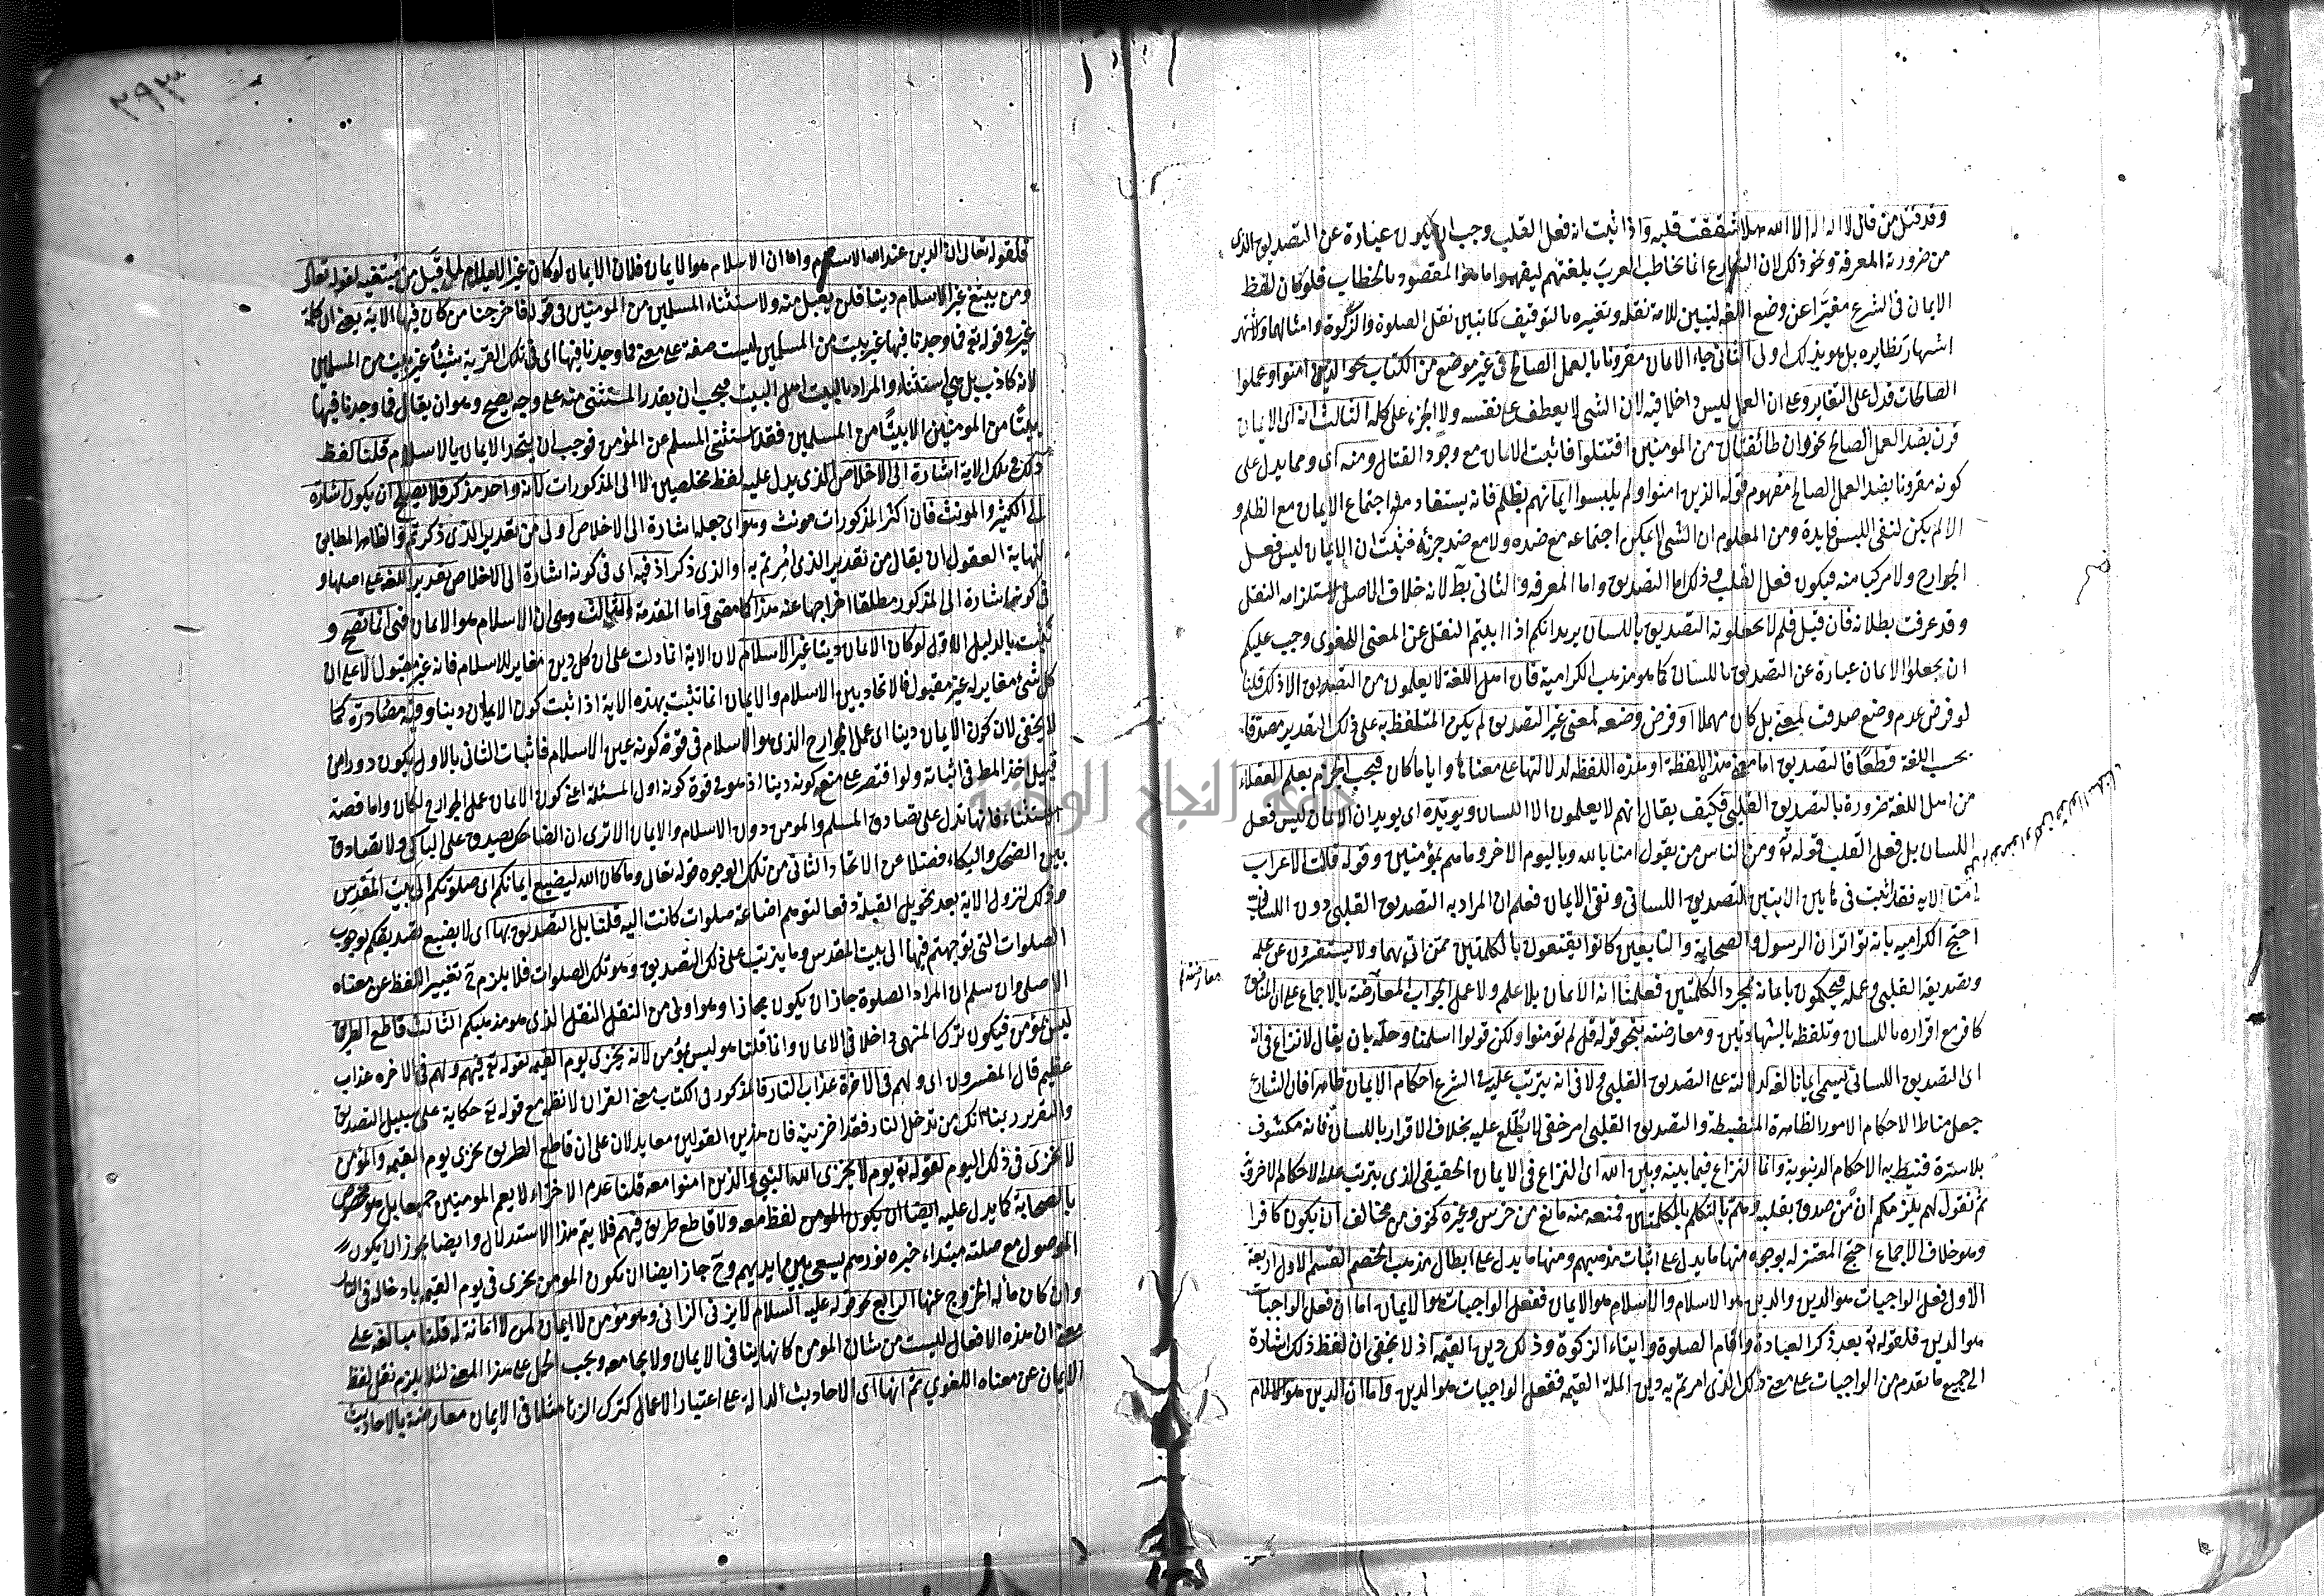 وقد قتل من قال لا اله الا الله هلا شققت قلبه واذا ثبت انه فعل القلب وجب ان يكون عبارة عن التصديق الذى
من ضرورته المعرفة ونحو ذلك لان الشارع انما يخاطب العرب بلغتهم ليفهموا ما هو المقصود بالخطاب فلو كان لفظ
الايمان فى الشرع مغيرا عن وضع اللغة لتبين للامة نقله وتغيره بالتوقيف كما تبين نقل الصلوة والزكوة وامثالهما ولاشتهر
اشتهار نظايره بل هو بذلك اولى الثانى جاء الايمان مقرونا بالعمل الصالح فى غير موضع من الكتاب نحو الذين امنوا وعملوا
الصالحات فدل على التغاير وعلى ان العمل ليس داخلا فيه لان الشى لا يعطف على نفسه ولا الجزء على كله الثالث انه اى الايمان
قرن بضد العمل الصالح نحو وان طائفتان من المومنين اقتتلوا فاثبت الايمان مع وجود القتال ومنه اى ومما يدل على
كونه مقرونا بضد العمل الصالح مفهوم قوله الذين امنوا ولم يلبسوا ايمانهم بظلم فانه يستفاد منه اجتماع الايمان مع الظلم و
الا لم يكن لنفى اللبس فايدة ومن المعلوم ان الشى لا يمكن اجتماعه مع ضده ولا مع ضد جزئه فثبت ان الايمان ليس فعل
الجوارح ولا مركبا منه فيكون فعل القلب وذلك اما التصديق واما المعرفة والثانى بط لانه خلاف الاصل لاستلزامه النقل
وقد عرفت بطلانه فان قيل فلم لا تجعلونه التصديق باللسان يريد انكم اذا ابيتم النقل عن المعنى اللغوى وجب عليكم
ان تجعلوا الايمان عبارة عن التصديق باللسان كما هو مذهب الكرامية فان اهل اللغة لا يعلمون من التصديق الا ذلك قلنا
لو فرض عدم وضع صدقت لمعنى بل كان مهملا او فرض وضعه لمعنى غير التصديق لم يكن المتلفظ به على ذلك التقدير مصدقا
بحسب اللغة قطعا فالتصديق اما معنى هذه اللفظة او هذه اللفظة لدلالتها على معناها وايا ما كان فيجب الجزم بعلم العقلاء
من اهل اللغة ضرورة بالتصديق القلبى فكيف يقال انهم لا يعلمون الا اللسان ويويده اى يويد ان الايمان ليس فعل
اللسان بل فعل القلب قوله تع ومن الناس من يقول امنا بالله وباليوم الاخر وما هم بمؤمنين وقوله قالت الاعراب
امنا الاية فقد اثبت فى هاتين الايتين التصديق اللسانى ونفى الايمان فعلم ان المراد به التصديق القلبى دون اللسانى
احتج الكراميه بانه تواتر ان الرسول والصحابة والتابعين كانوا يقنعون بالكلمتين ممن اتى بهما ولا يستفسرون عن علمه
وتصديقه القلبى وعمله فيحكمون بايمانه بمجرد الكلمتين فعلمنا انه الايمان بلا علم ولا عمل الجواب المعارضة بالاجماع على ان المنافق
كافر مع اقراره باللسان وتلفظه بالشهادتين ومعارضته بنحو قوله قل لم تومنوا ولكن قولوا اسلمنا وحله بان يقال لا نزاع فى انه
اى التصديق اللسانى يسمى ايمانا لغة لدلالته على التصديق القلبى ولا فى انه يترتب عليه فى الشرع احكام الايمان ظاهرا فان الشارع
جعل مناط الاحكام الامور الظاهرة المنضبطة والتصديق القلبى امر خفى لا يطلع عليه بخلاف الاقرار باللسان فانه مكشوف
بلا سترة فنيط به الاحكام الدنيوية وانما النزاع فيما بينه وبين الله اى النزاع فى الايمان الحقيقى الذى يترتب عليه الاحكام الاخروية
ثم نقول لهم يلزمكم ان من صدق بقلبه وهم بالتكلم بالكلمتين فمنعه منه مانع من خرس وغيره كخوف من مخالف ان يكون كافرا
وهو خلاف الاجماع احتج المعتزله بوجوه منها ما يدل على اثبات مذهبهم ومنها ما يدل على ابطال مذهب الخصم القسم الاول اربعة
الاول فعل الواجبات هو الدين والدين هو الاسلام والاسلام هو الايمان ففعل الواجبات هو الايمان اما ان فعل الواجبات
هو الدين فلقوله تع بعد ذكر العبادة واقام الصلوة وايتاء الزكوة وذلك دين القيمة اذ لا يخفى ان لفظ ذلك اشارة
الى جميع ما تقدم من الواجبات على معنى ذلك الذى امرتم به دين الملة القيمة ففعل الواجبات هو الدين واما ان الدين هو الاسلام
معارضة
٢٩٣
فلقوله تعالى ان الدين عند الله الاسلام واما ان الاسلام هو الايمان فلان الايمان لو كان غير الاسلام لما قبل من مبتغيه لقوله تعالى
ومن يبتغ غير الاسلام دينا فلن يقبل منه ولاستثناء المسلمين من المومنين فى قوله فاخرجنا من كان فيها الاية يعنى ان كلمة
غير فى قوله تع فما وجدنا فيها غير بيت من المسلمين ليست صفة على معنى فما وجدنا فيها اى فى تلك القرية شيئا غير بيت من المسلمين
لانه كاذب بل هى استثناء والمراد بالبيت اهل البيت فيجب ان يقدر المستثنى منه على وجه يصح وهو ان يقال فما وجدنا فيها
بيتا من المومنين الا بيتا من المسلمين فقد استثنى المسلم عن المؤمن فوجب ان يتحد الايمان بالاسلام قلنا لفظ
ذلك فى تلك الاية اشارة الى الاخلاص الذى يدل عليه لفظ مخلصين لا الى المذكورات لانه واحد مذكر فلا يصلح ان يكون اشارة
الى الكثير والمونث فان اكثر المذكورات مونث وهو اى جعله اشارة الى الاخلاص اولى من تقدير الذى ذكرتم والظاهر المطابق
لنهاية العقول ان يقال من تقدير الذى امرتم به او الذى ذكر اذ فيه اى فى كونه اشارة الى الاخلاص تقرير اللغة على اصلها و
فى كونها اشارة الى المذكور مطلقا اخراجها عنه هذا كما مضى واما المقدمة الثالثة وهى ان الاسلام هو الايمان فهى انما تصح و
تثبت بالدليل الاول لو كان الايمان دينا غير الاسلام لان الاية انما دلت على ان كل دين مغاير للاسلام فانه غير مقبول لا على ان
كل شئ مغاير له غير مقبول فالاتحاد بين الاسلام والايمان انما تثبت بهذه الاية اذا ثبت كون الايمان دينا وفيه مصادرة كما
لا يخفى لان كون الايمان دينا اى عمل الجوارح الذى هو الاسلام فى قوة كونه عين الاسلام فاثبات الثانى بالاول يكون دورا من
قبيل اخذ المط فى اثباته ولو اقتصر على منع كونه دينا اذ هو فى قوة كونه اول المسئلة اعنى كون الايمان عمل الجوارح لكان واما قصة
الاستثناء فانها تدل على تصادق المسلم والمومن دون الاسلام والايمان الا ترى ان الضاحك يصدق على الباكى ولا تصادق
بين الضحك والبكاء فضلا عن الاتحاد الثانى من تلك الوجوه قوله تعالى وما كان الله ليضيع ايمانكم اى صلوتكم الى بيت المقدس
وذلك لنزول الاية بعد تحويل القبلة دفعا لتوهم اضاعة صلوات كانت اليه قلنا بل التصديق بها اى لا يضيع تصديقكم بوجوب
الصلوات التى توجهتم فيها الى بيت المقدس وما يترتب على ذلك التصديق وهو تلك الصلوات فلا يلزم ح تغيير اللفظ عن معناه
الاصلى وان سلم ان المراد الصلوة جاز ان يكون مجازا وهو اولى من النقل الذى هو مذهبكم الثالث قاطع الطريق
ليس بمؤمن فيكون ترك المنهى داخلا فى الايمان وانما قلنا هو ليس بمؤمن لانه يخزى يوم القيمة لقوله تع فيهم ولهم فى الاخرة عذاب
عظيم قال المفسرون اى ولهم فى الاخرة عذاب النار فالمذكور فى الكتاب معنى القران لا نظمه مع قوله تع حكاية على سبيل التصديق
والتقرير ربنا انك من تدخل النار فقد اخزيته فان هذين القولين معا يدلان على ان قاطع الطريق يخزى يوم القيمة والمؤمن
لا يخزى فى ذلك اليوم لقوله تع يوم لا يخزى الله النبى والذين امنوا معه قلنا عدم الاخزاء لا يعم المومنين جميعا بل هو مخصوص
بالصحابة كما يدل عليه لفظ معه ولا قاطع طريق فيهم فلا يتم هذا الاستدلال وايضا يجوز ان يكون
الموصول مع صلته مبتداء خبره نورهم يسعى بين ايديهم وح جاز ايضا ان يكون المومن يخزى فى يوم القيمة بادخاله فى النار
وان كان مآله الخروج عنها الرابع نحو قوله عليه السلام لا يزنى الزانى وهو مؤمن لا ايمان لمن لا امانة له قلنا مبالغة على
معنى ان هذه الافعال ليست من شان المومن كانها ينافى الايمان ولا يجامعه ويجب الحمل على هذا المعنى لئلا يلزم نقل لفظ
الايمان عن معناه اللغوى ثم انها اى الاحاديث الدالة على اعتبار الاعمال كترك الزنا مثلا فى الايمان معارضة بالاحاديث